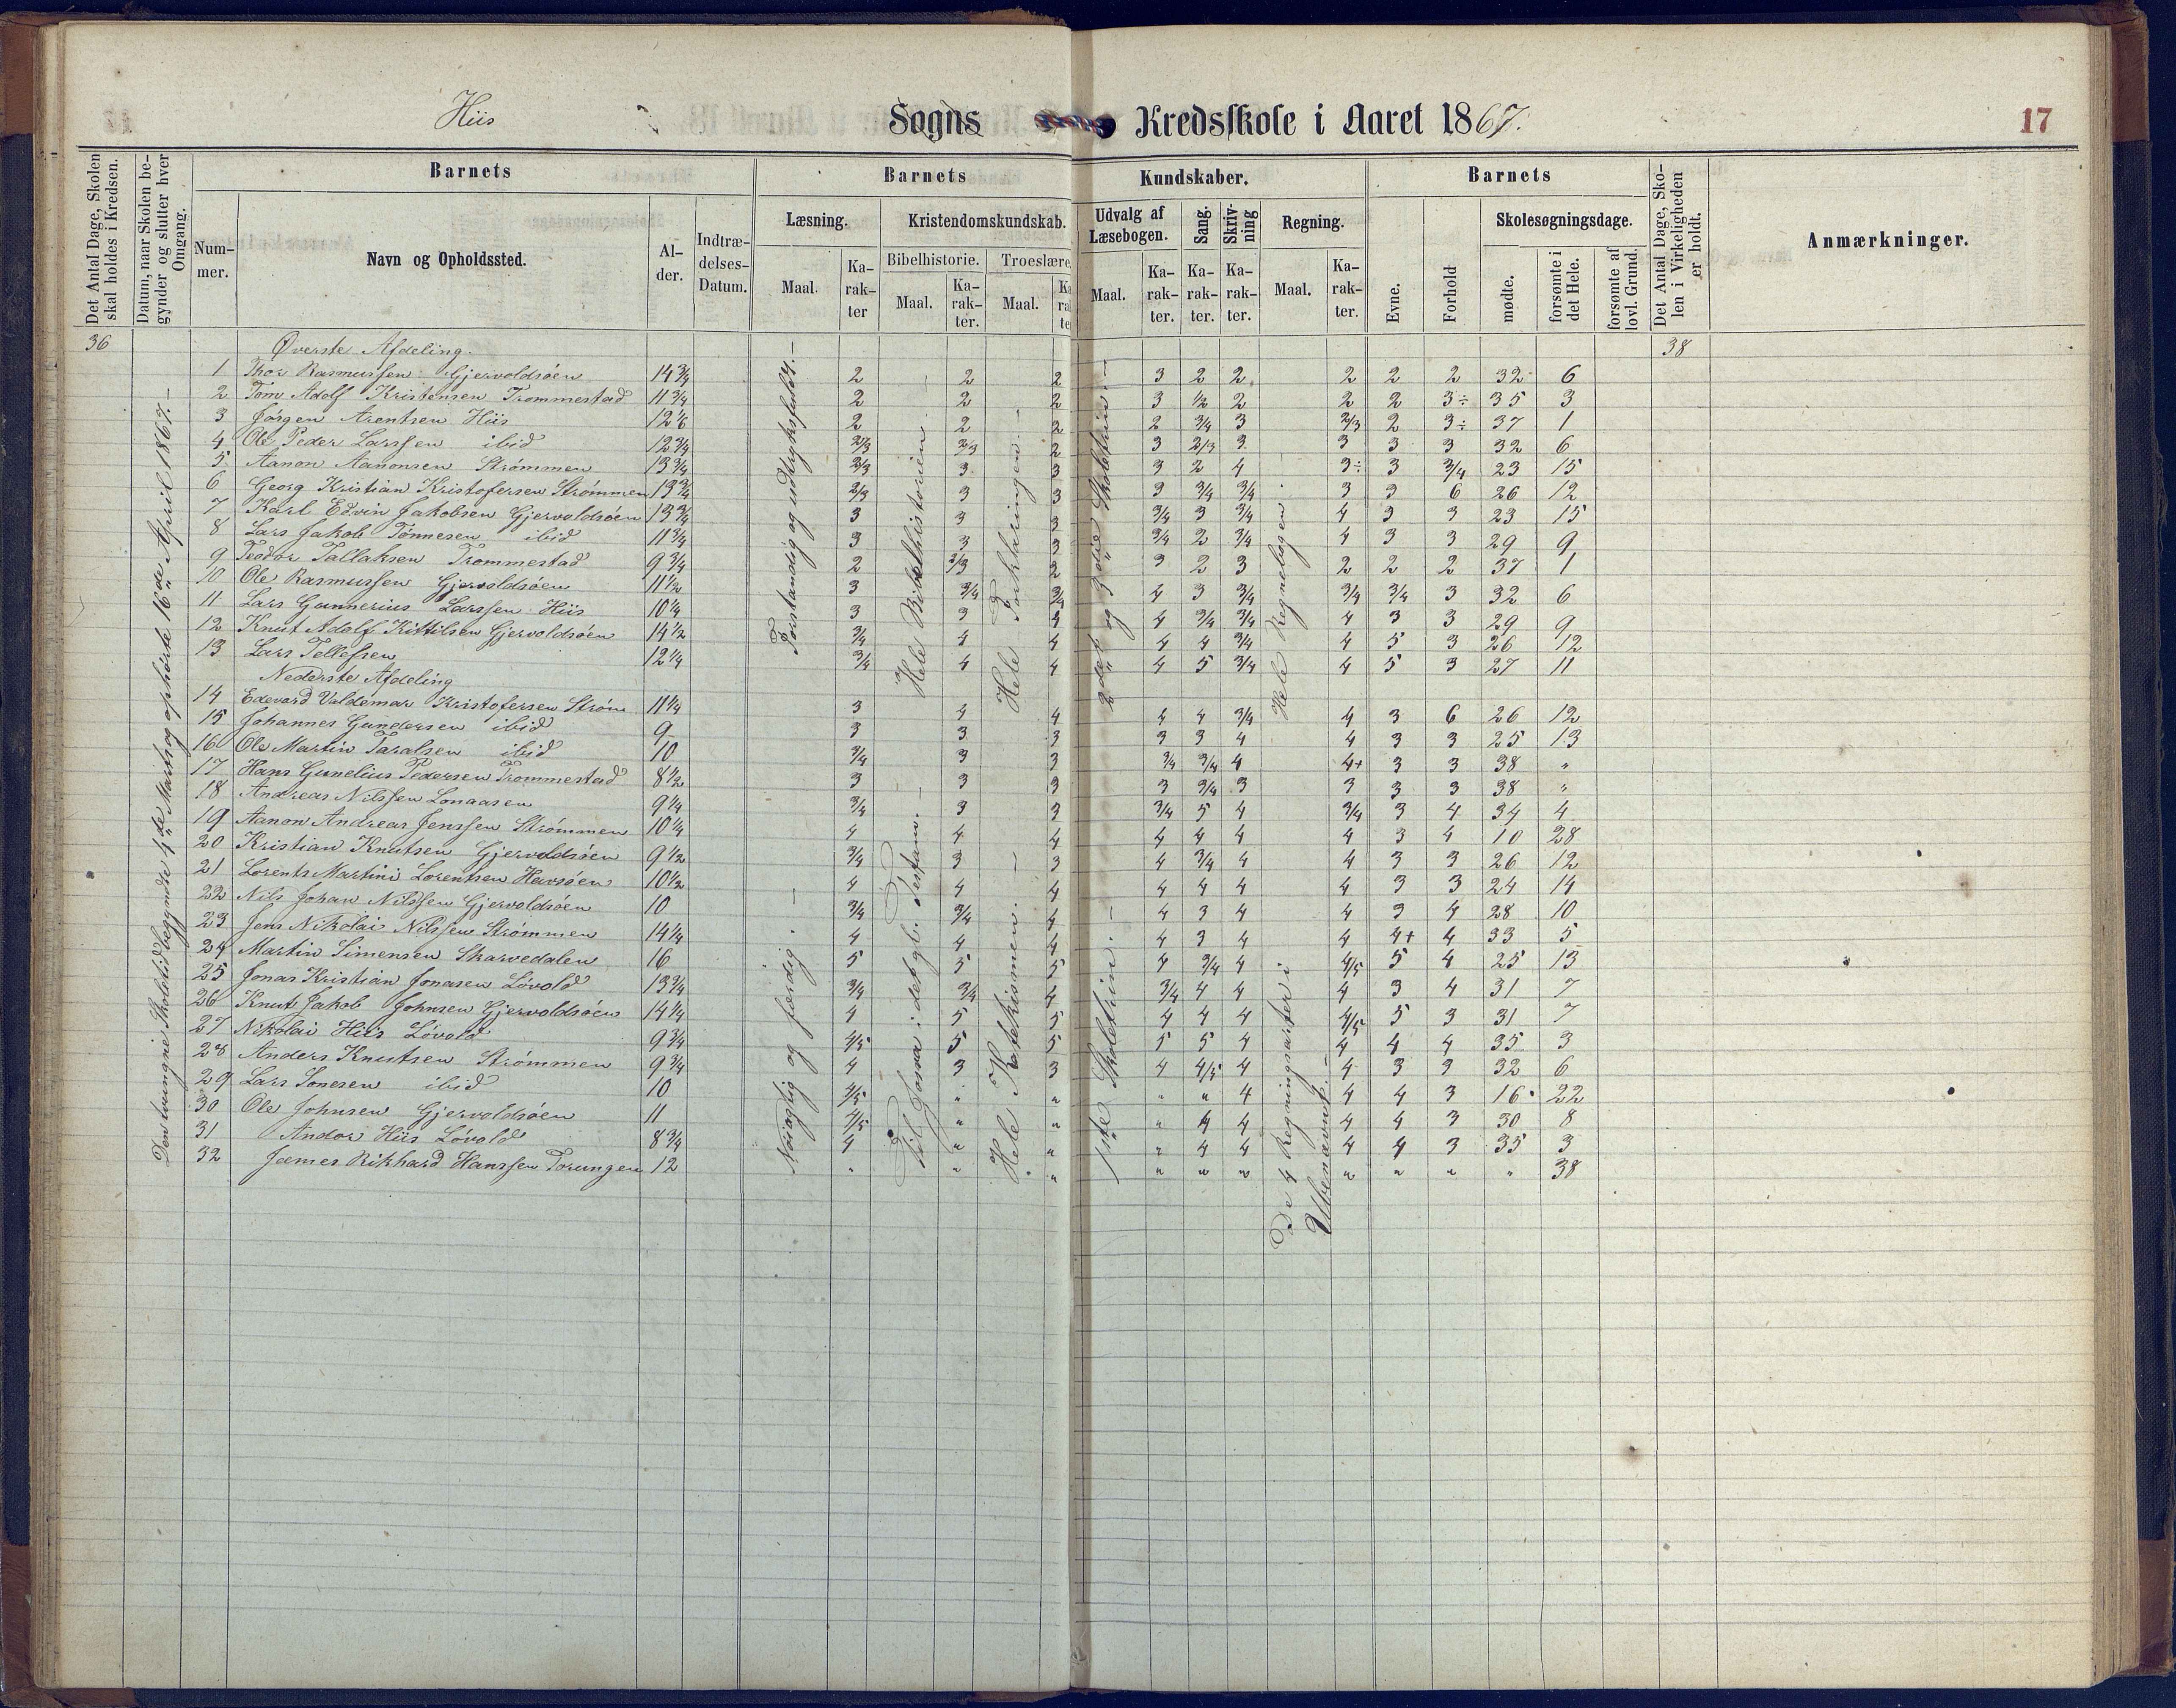 Hiis Sogns Kredsskole i Aaret 1867. 17
Det Antal Dage, Skolen skal holdes i Kredsen.
Datum, naar Skolen begynder og slutter hver Omgang.
Barnets Barnets Kundskaber. Barnets
Nummer. Navn og Opholdssted. Alder. Indtrædelses-Datum.
Læsning. Kristendomskundskab. Udvalg af Læsebogen. Sang. Skrivning Regning.
Bibelhistorie. Troeslære
Maal. Karakter Maal. Karakter. Maal. Maal. Karakter. Karakter. Karakter. Maal. Karakter.
Evne. Forhold Skolesøgningsdage. mødte. forsømte i det Hele. forsømte af lovl. Grund.
Det Antal Dage, Skolen i Virkeligheden er holdt.
Anmærkninger.
36 Øverste Afdeling. 38
1 Thor Rasmussen Gjervoldsøen 14 3/4 2 2 2 3 2 2 2 2 2 32 6
2 Tom Adolf Kristensen Trommestad 11 3/4 2 2 2 3 1/2 2 2 2 3÷ 35 3
3 Jørgen Arentsen Hiis 12 1/6 2 2 2 2 3/4 3 2/3 2 3÷ 37 1
4 Ole Peder Larssen ibid 12 3/4 2/3 2/3 2 3 2/3 3 3 3 3 32 6
5 Aanon Aanonsen Strømmen 13 3/4 2/3 3 3 3 2 4 3÷ 3 3/4 23 15
6 Georg Kristian Kristofersen Strømmen 13 3/4 2/3 3 3 3 3/4 3/4 3 3 6 26 12
7 Karl Edvin Jakobsen Gjervoldsøen 13 3/4 3 3 3 3/4 3 3/4 4 3 3 23 15
8 Lars Jakob Tønnesen ibid 11 3/4 3 3 3 3/4 2 3/4 4 3 3 29 9
9 Teodor Tallaksen Trommestad 9 3/4 2 2/3 2 3 2 3 2 2 2 37 1
10 Ole Rasmussen Gjervoldsøen 11 1/2 3 3/4 3/4 4 3 3/4 3/4 3/4 3 32 6
11 Lars Gunnerius Larssen Hiis 10 1/4 3 3 4 4 3/4 3/4 4 3 3 29 9
12 Knut Adolf Kittilsen Gjervoldsøen 14 1/2 3/4 4 4 4 4 3/4 4 5 3 26 12
13 Lars Tellefsen 12 1/4 3/4 4 4 4 5 3/4 4 5 3 27 11
Nederste Afdeling
14 Edevard Valdemar Kristofersen Strøm 11 1/4 3 4 4 4 4 3/4 4 3 6 26 12
15 Johannes Gundersen ibid 9 3 3 3 3 3 4 4 3 3 25 13
16 Ole Martin Taralsen ibid 10 3/4 3 3 3/4 3/4 4 4+ 3 3 38 "
17 Hans Gunelius Pedersen Trommestad 8 1/2 3 3 3 3 3/4 3 3 3 3 38 "
18 Andreas Nilssen Longaasen 9 1/4 3/4 3 3 3/4 5 4 3/4 3 4 34 4
19 Aanon Andreas Jenssen Strømmen 10 1/4 4 4 4 4 4 4 4 3 4 10 28
20 Kristian Knutsen Gjervoldsøen 9 1/2 3/4 3 3 4 3/4 4 4 3 3 26 12
21 Lorents Martini Lorentsen Havsøen 10 1/2 4 4 4 4 4 4 4 3 3 24 14
22 Nils Johan Nilssen Gjervoldsøen 10 3/4 3/4 4 4 3 4 4 3 4 28 10
23 Jens Nikolai Nilssen Strømmen 14 1/4 4 4 4 4 3 4 4 4+ 4 33 5
24 Martin Simensen Skarvedalen 16 5 5 5 4 3/4 4 4/5 5 4 25 13
25 Jonas Kristian Jonasen Løvold 13 3/4 3/4 3/4 4 3/4 4 4 4 3 4 31 7
26 Knut Jakob Johnsen Gjervoldsøen 14 1/4 4 5 5 4 4 4 4/5 5 3 31 7
27 Nikolai Hiis Løvold 9 3/4 4/5 5 5 5 5 4 4 4 4 35 3
28 Anders Knutsen Strømmen 9 3/4 4 3 3 4 4/5 4 4 3 3 32 6
29 Lars Sonesen ibid 10 4/5 " " " " 4 4 4 3 16 22
30 Ole Johnsen Gjervoldsøen 11 4/5 " " " 4 4 4 4 3 30 8
31 Andor Hiis Løvold 8 3/4 4 " " " 4 4 4 4 3 35 3
32 James Rikhard Hanssen Torungen 12 " " " " " " " " " " 38
Den tvungne Skoletid begyndte 4de Marts og ophørte 16de April 1867.
Forstandig og udtryksfuldt.
Hele Bibelhistorien
Hele Forklaringen.
2det og 3die Skoletrin.
Hele Regnebogen.
Nøiagtig og færdig.
Til Josva i det gl. Testam.
Hele Katekismen.
1ste Skoletrin.
De 4 Regningsarter i Ubenævnt.